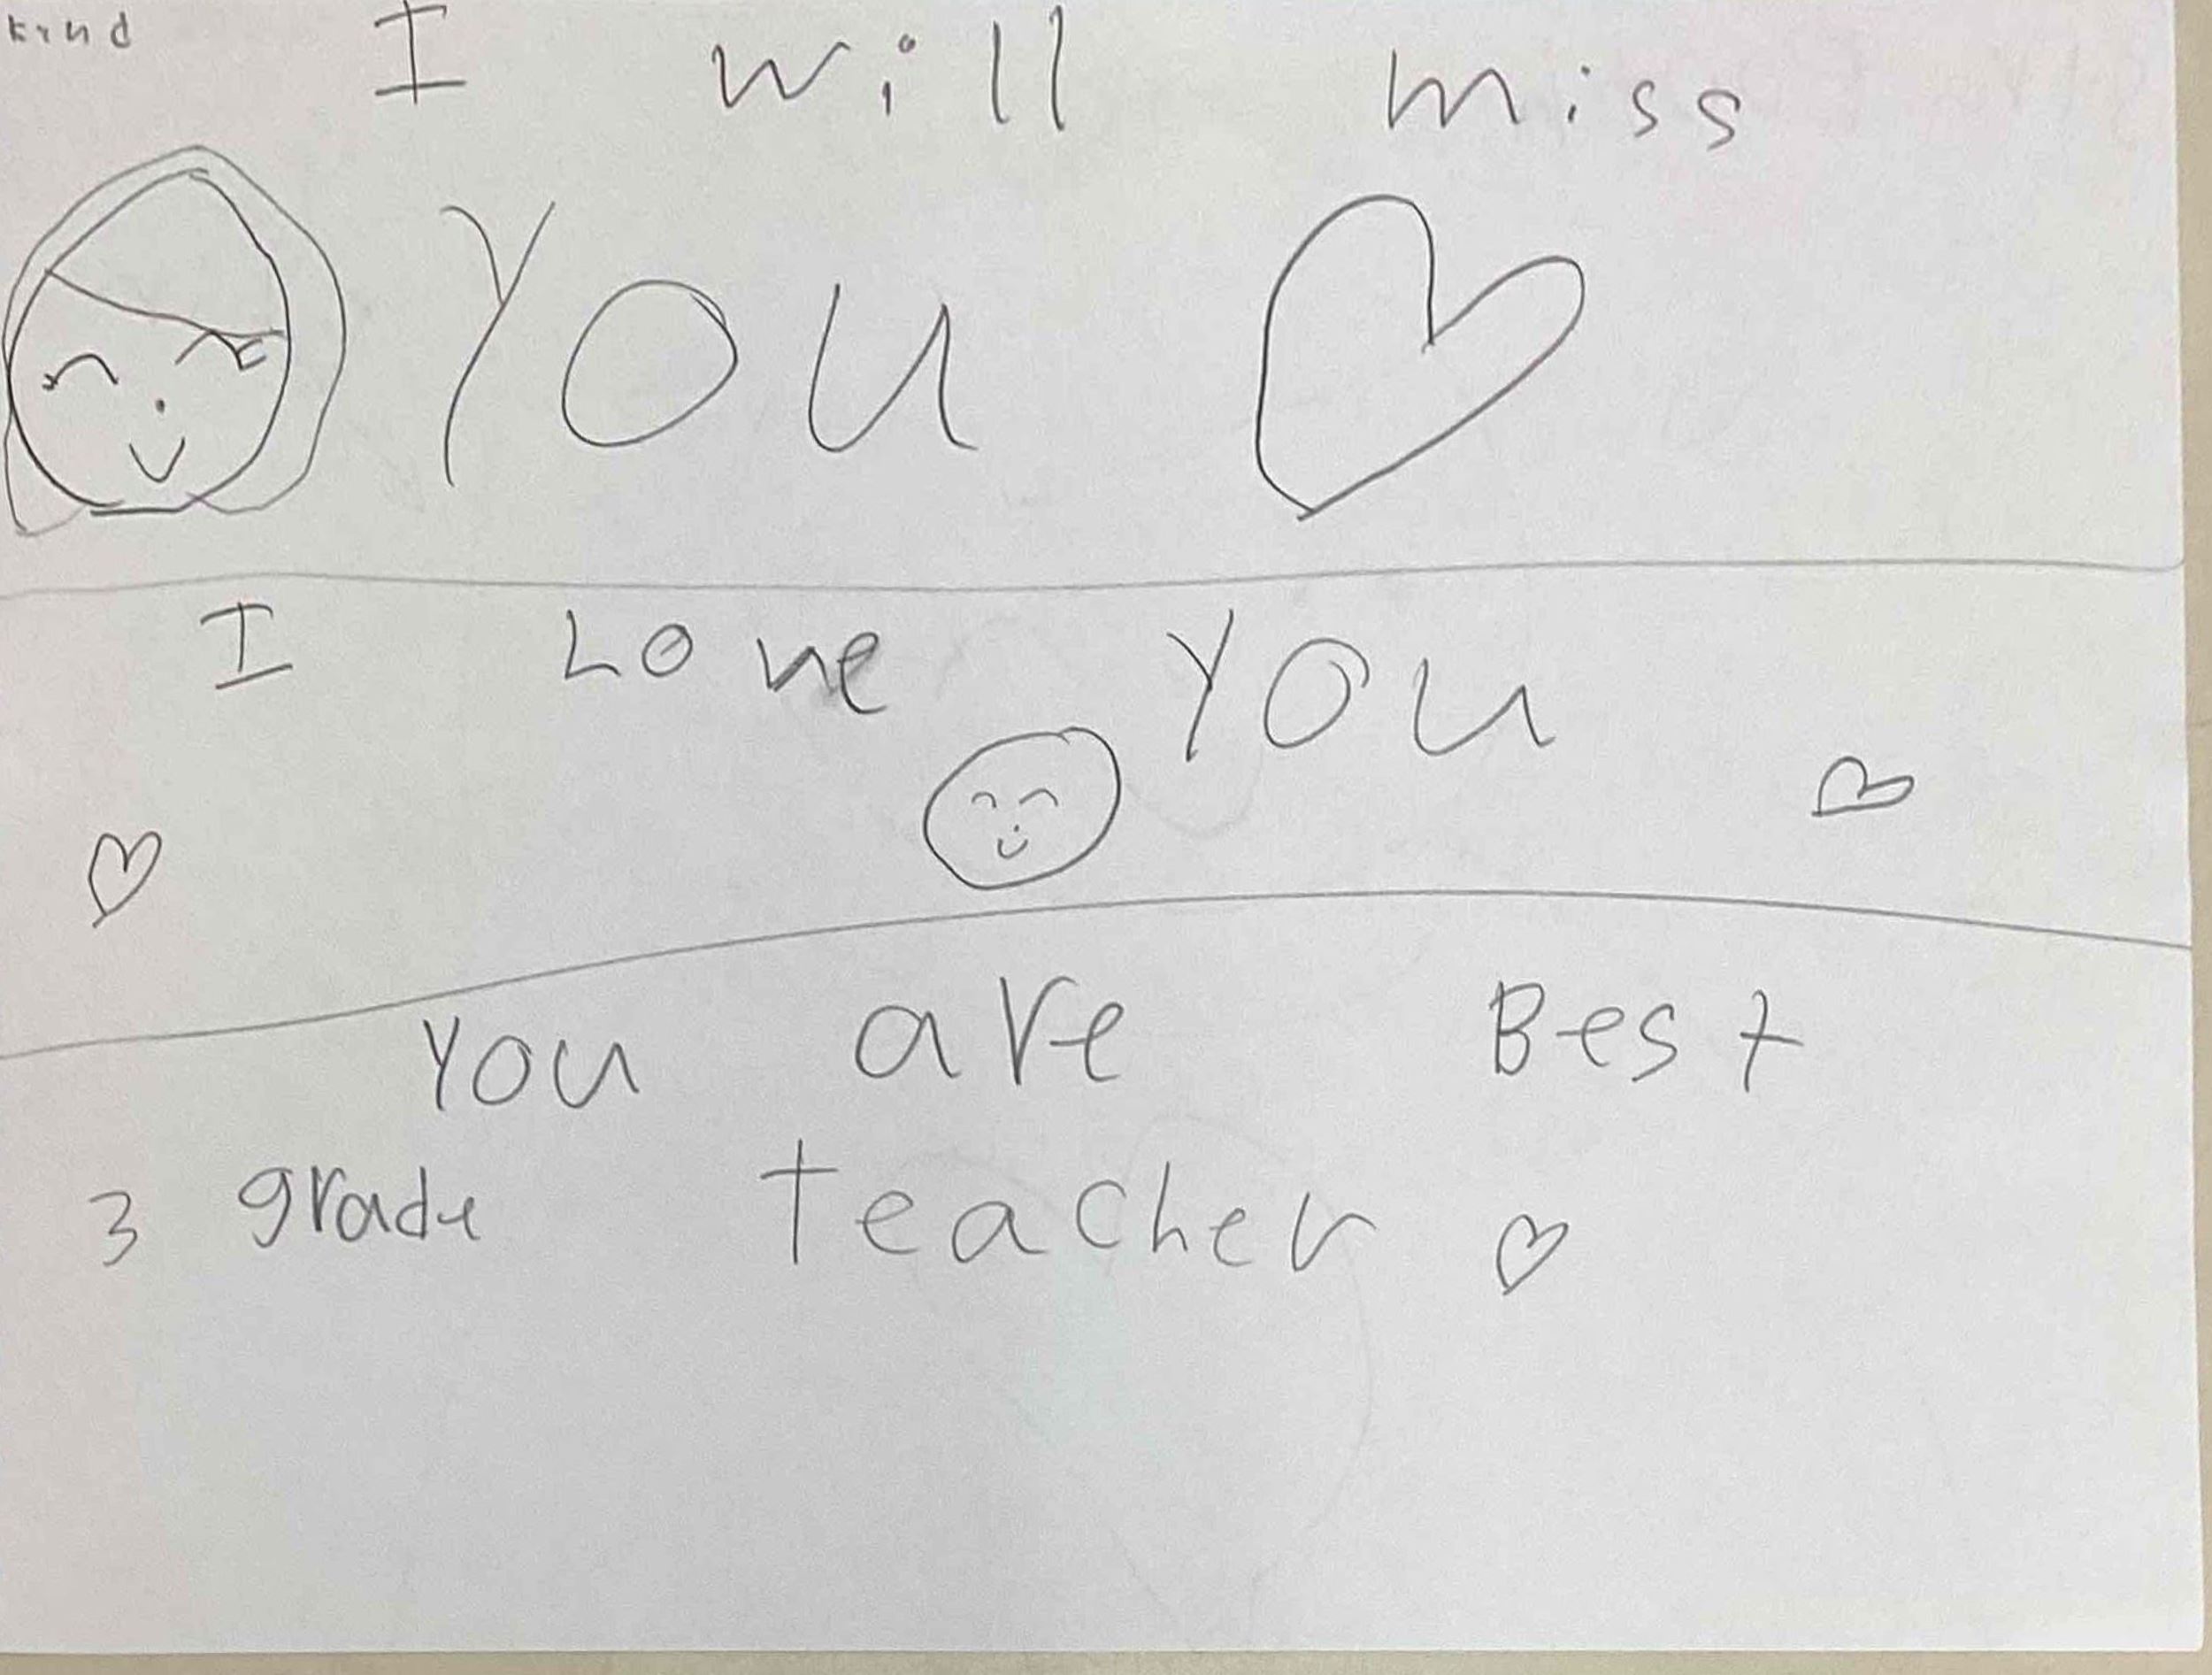 kind
I will miss
You
I Love You
You are Best
3 grade teacher